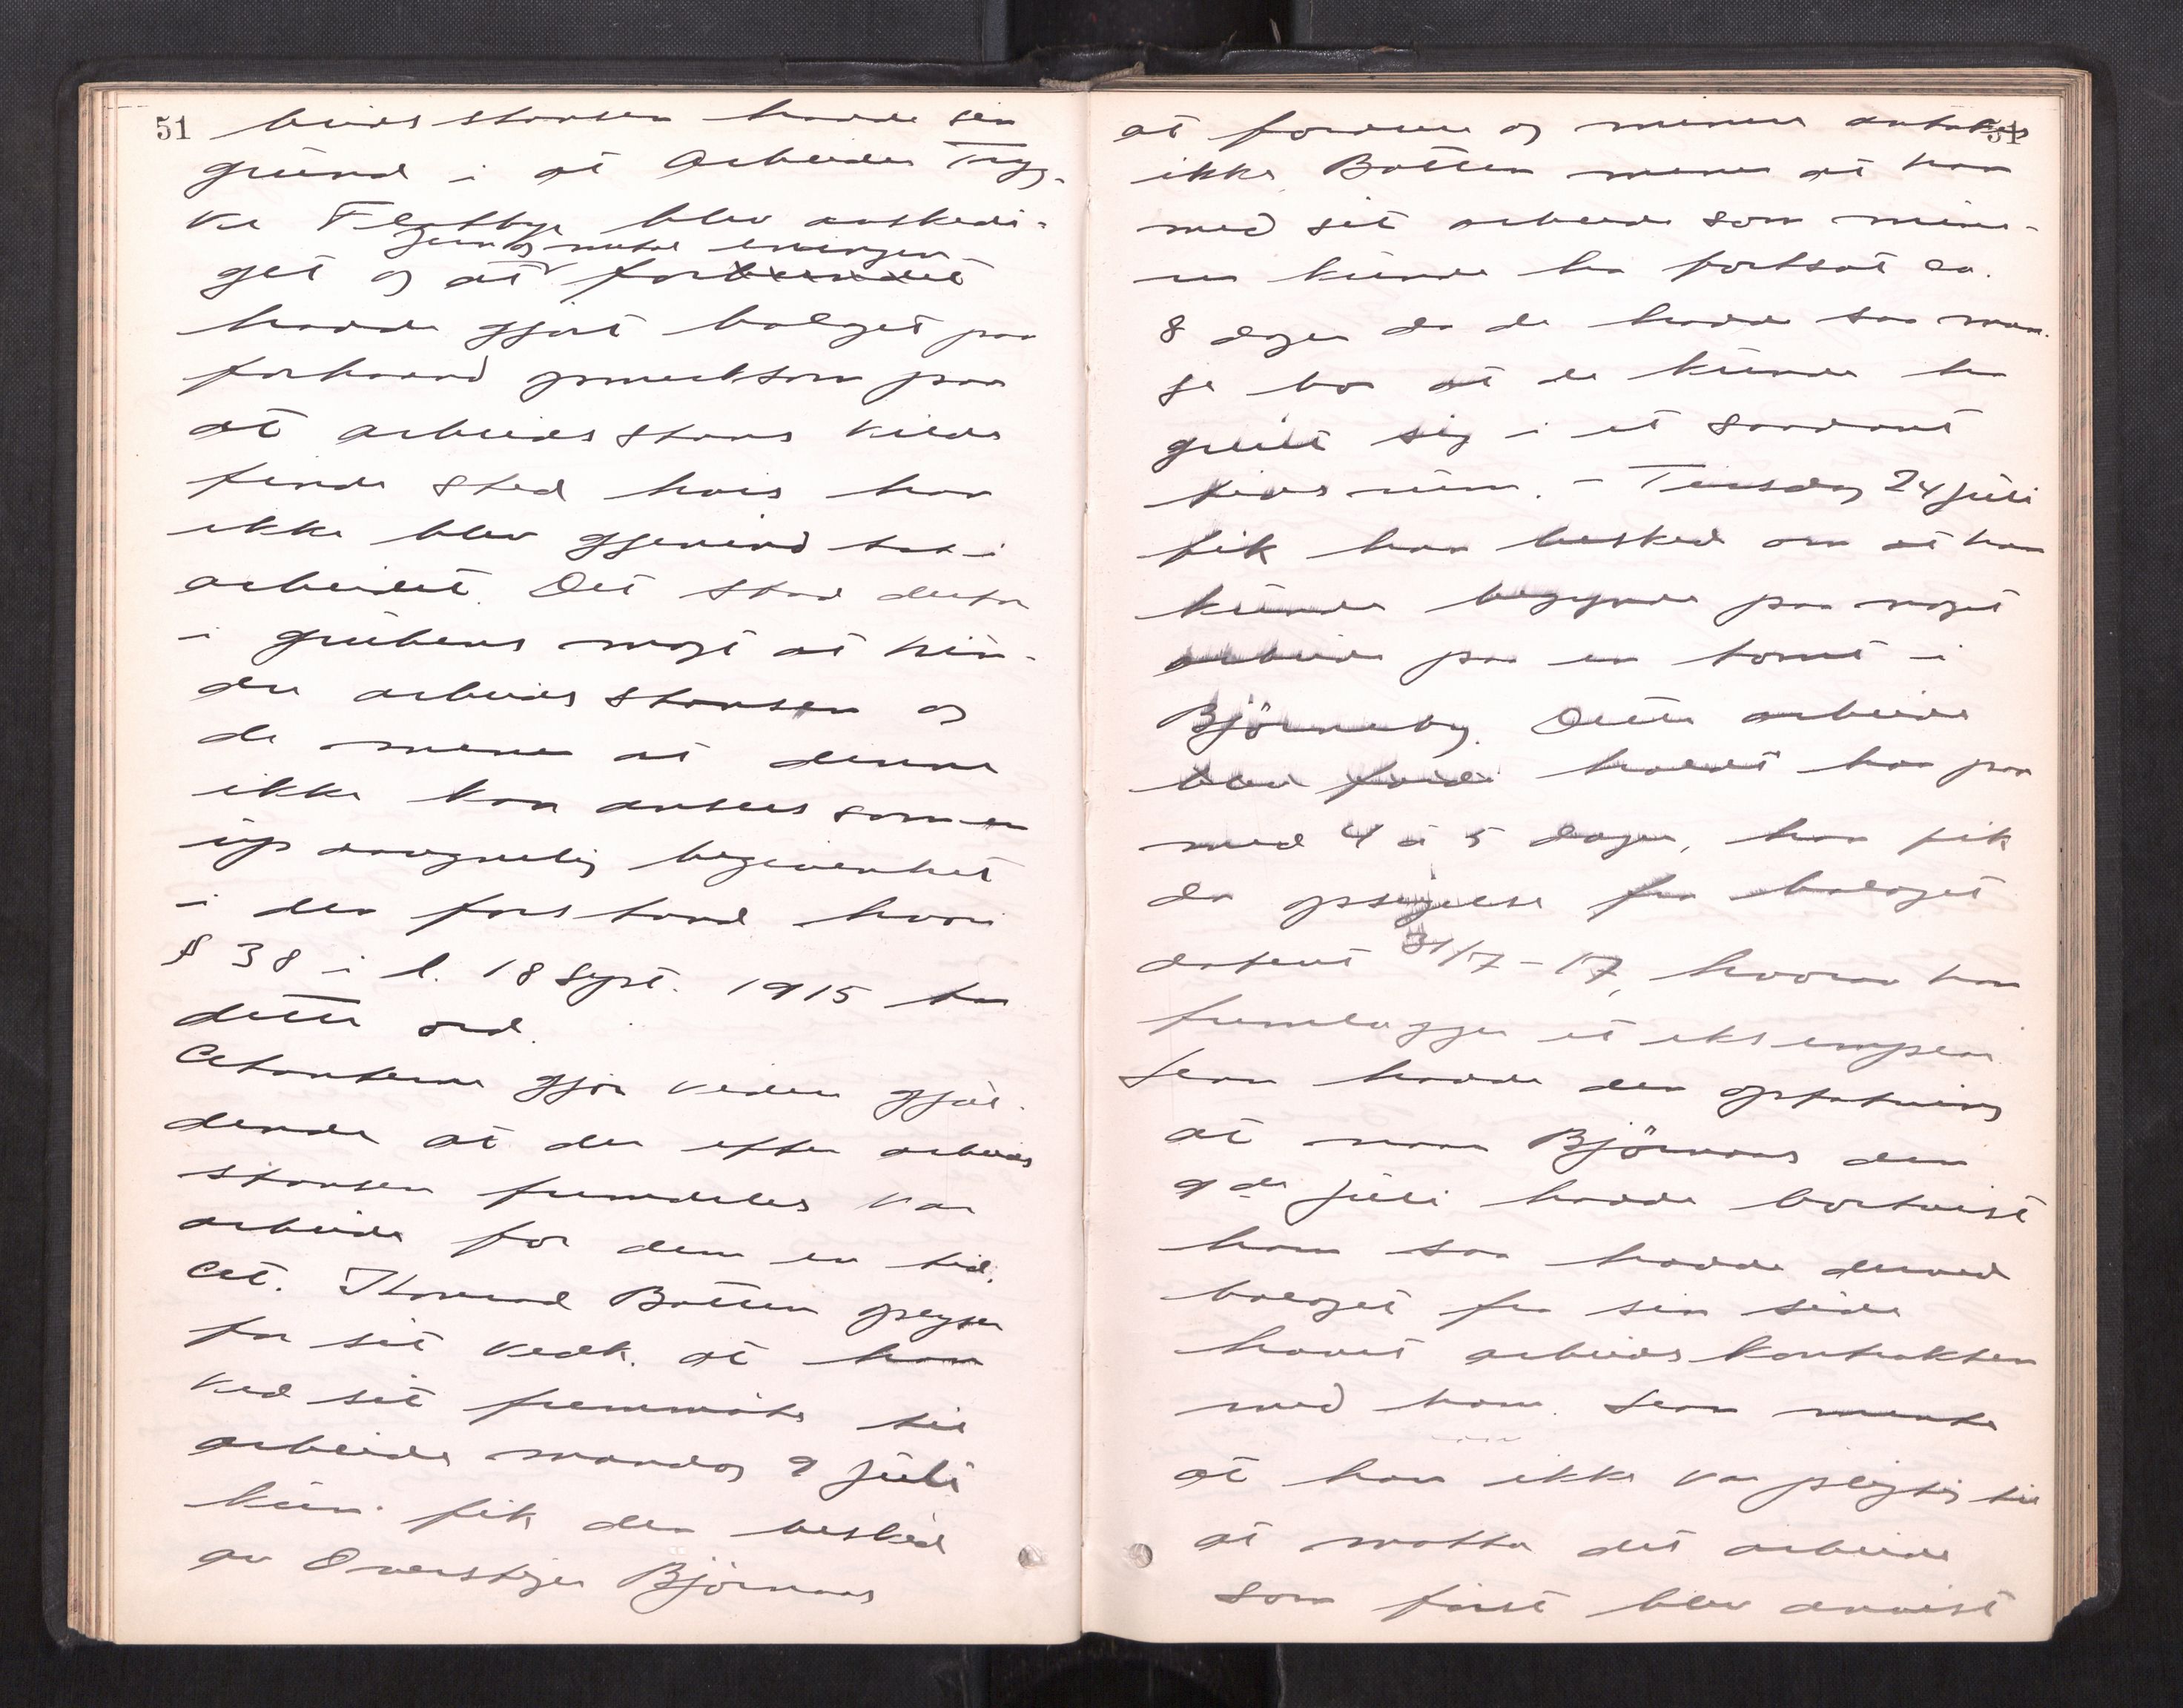 51
beidsstansen havde sin
grund i at Arbeider Tryg-
ve Flatbye blev avskedi-
get og at forbundet
havde gjort bolaget paa
forhaand opmerksom paa
at arbeidsstans vilde
finde sted hvis han
ikke blev gjenind tat i
arbeidet. Det stod derfor
i grubens magt at hin-
dre arbeidsstansen og
de mener at denne
ikke kan ansees som en
upaaregnelig begivenhet
i den forstand hvori
§ 38 i l. 18 Sept. 1915 tar
dette ord.
Citanterne gjör videre gjæl-
dende at der efter arbeids
stansen fremdeles var
arbeide for dem en tid.
Cit. Thorvald Botten oplyser
for sit vedk. at han
ved sit fremmöte til
arbeide mandag 9 juli
kun fik den besked
av Overstiger Björnaas
51
at formene og minere
ikke. Botten mener at han
med sit arbeide som mine-
rer kunde ha fortsat ca.
8 dager da de hadde saa man-
ge bor at de kunde ha
greiet sig i et saadant
tidsrum. - Tirsdag 24 juli
fik han besked om at han
kunde begynde paa noget
arbeide paa en tomt i
Björneby. Dette arbeide
blev holdt han paa
med 4 à 5 dager, han fik
da opsigelse fra bolaget
datert 31/7-17, hvorav han
fremlægger et eksemplar.
Han hadde den opfatning
at naar Björnaas den
9de juli hadde bortvist
ham saa hadde dermed
bolaget fra sin side
hævet arbeidskontrakten
med ham. Han mente
at han ikke var pligtig til
at motta det arbeide
som först blev anvist